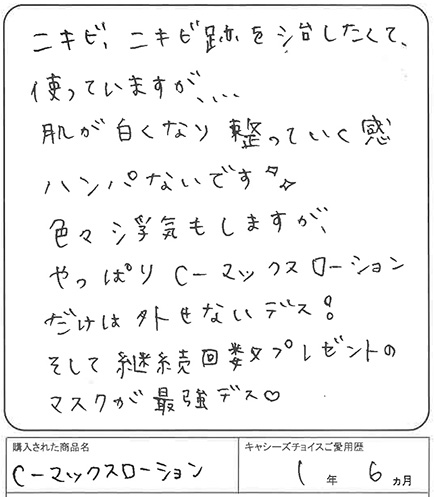 ニキビ、ニキビ跡を治したくて、
使っていますが、、、、
肌が白くなり整っていく感
ハンパないです
色々浮気もしますが、
やっぱりCーマックスローション
だけは外せないデス!
そして継続回数プレゼントの
マスクが最強デス♡
購入された商品名
キャシーズチョイスご愛用歴
Cーマックスローション
1年6ヵ月